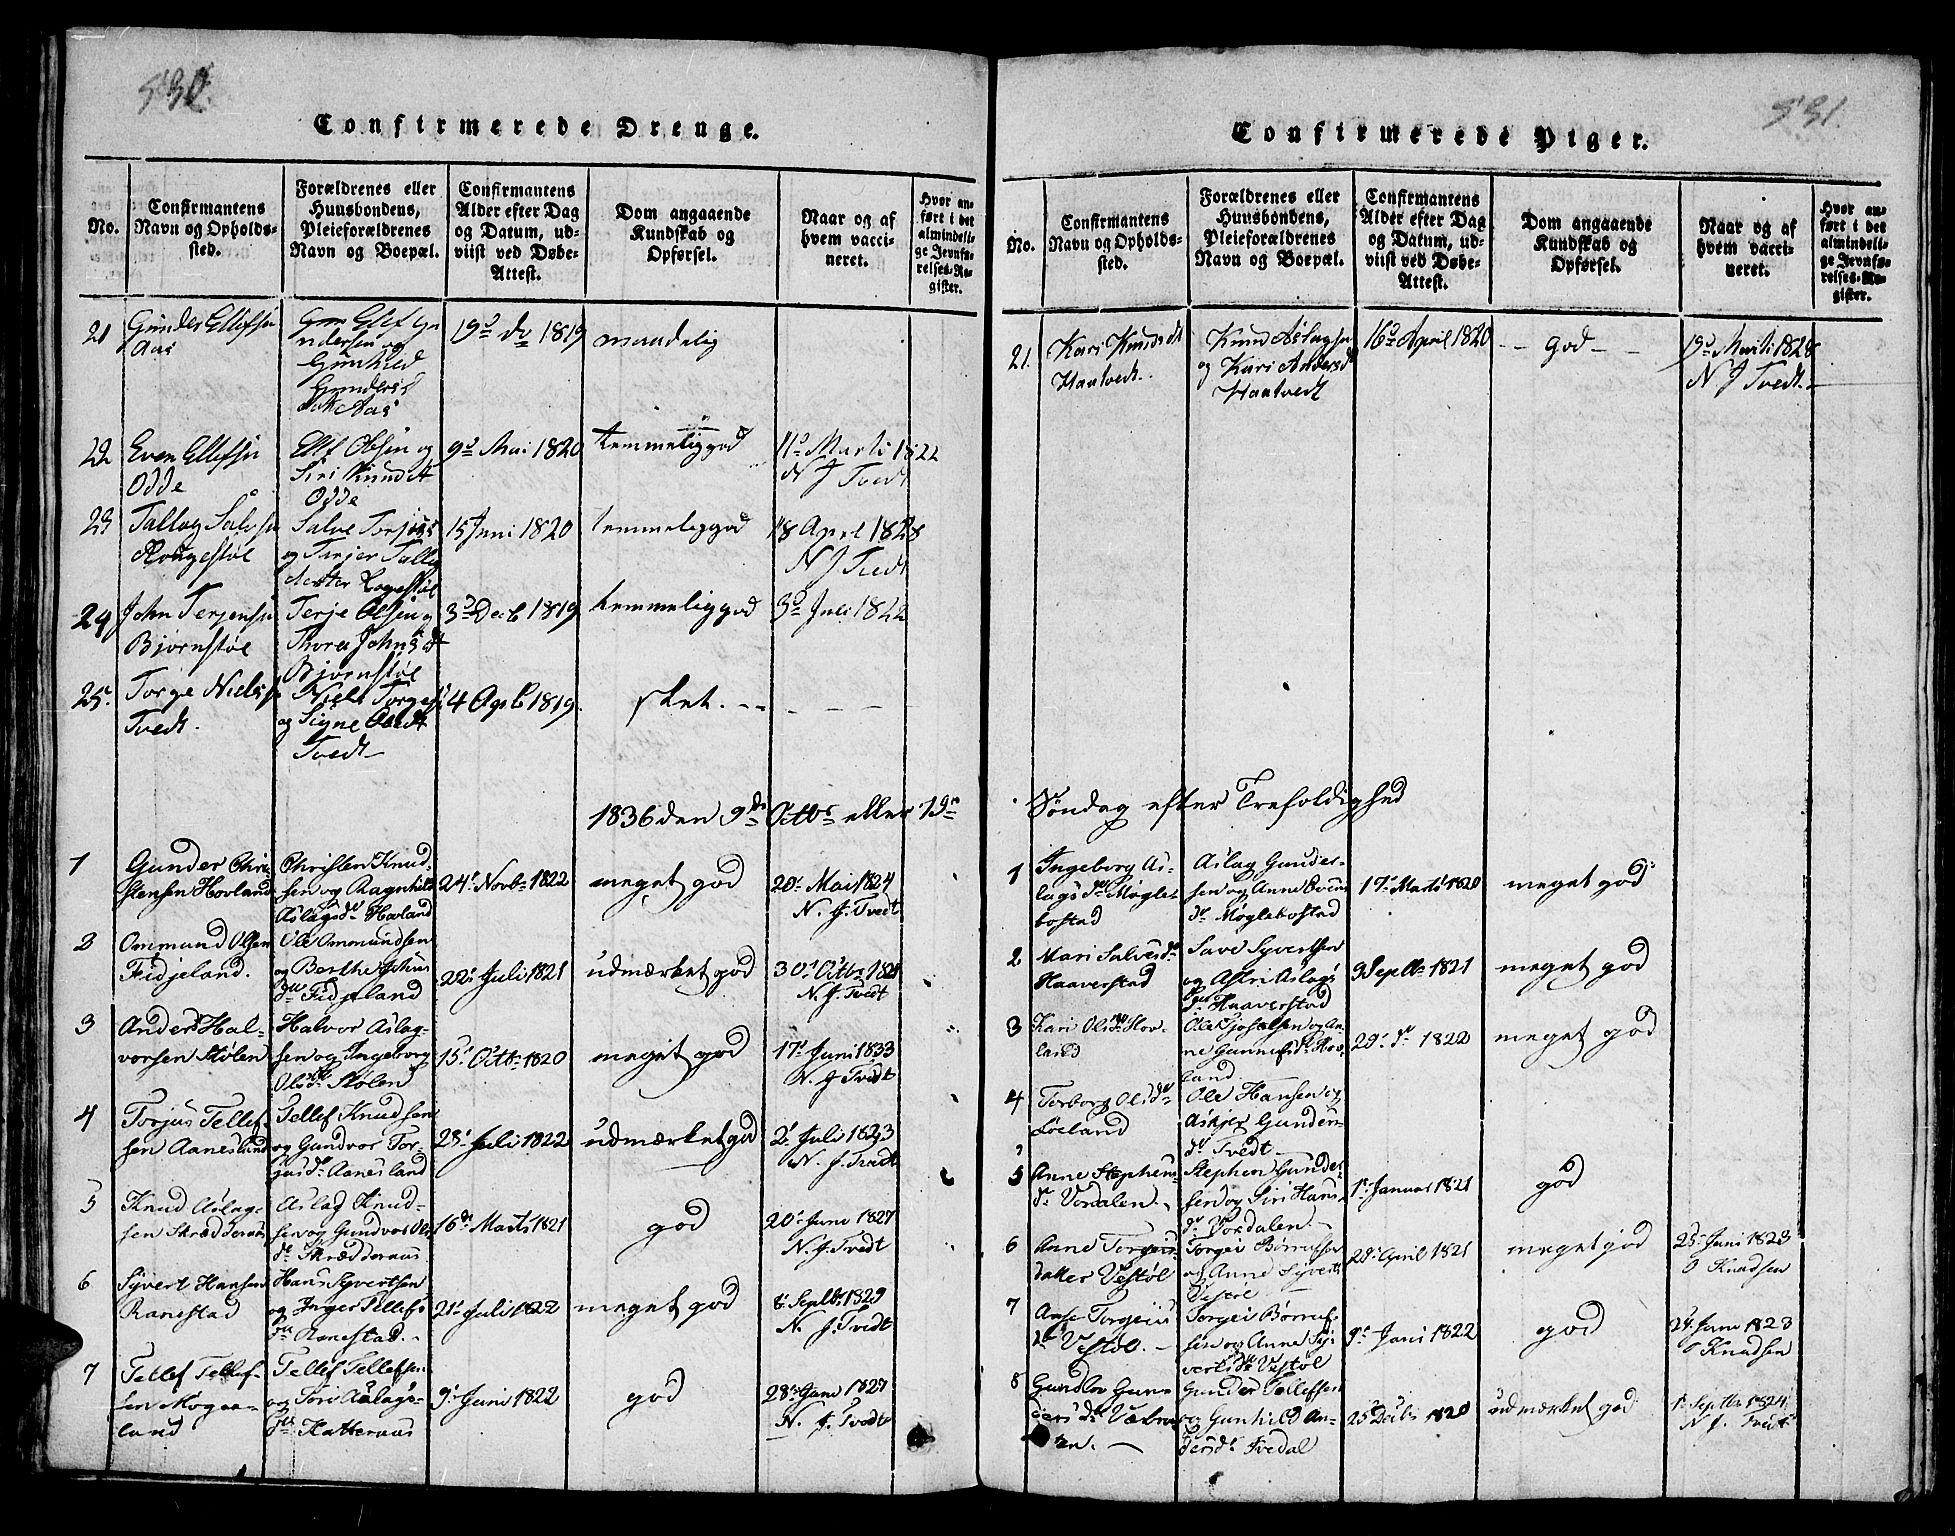 530.
Confirmerede Drenge.
No.
Confirmantens
Navn og Opholds-
sted.
Forældrenes eller
Huusbondens,
Pleieforældrenes
Navn og Boepæl.
Confirmantens
Alder efter Dag
og Datum, ud-
viist ved Døbe-
Attest.
Dom angaaende
Kundskab og
Opførsel.
Naar og af
hvem vacci-
neret.
Hvor an-
ført i det
almindeli-
ge Jevnfø-
relses-Re-
gister.
21
Gunder Ellefsen
Aas
Elef Gu
ndersen og
Gunhild
Gunders
Aas
19d do 1819
maadelig
22
Even Ellefsen
Odde
Ellef Olsen og
Siri Knudsd
Odde
9d Mai 1820
temmelig god
11d Marti 1822
N J Tvedt
23
Tallag Salvesen
Rougestøl
Salve Torjus
og Torjer Talle
dotter Rogestøl
15 Juni 1820
temmelig god
18 April 1828
N J Tvedt
24
John Terjensen
Bjørnstøl
Terje Olsen og
Thore Johns dt
Bjørnstøl
3d Decb 1819
temmelig god
3d Juli 1822
25.
Torge Nielsen
Tvedt.
Niels Torges
og Signe
Tvedt
4 Apl 1819.
slet. - -
1836 den 9de Octbr eller 19n
1
Gunder Chri-
stensen Hovland
Christen Knud-
sen og Ragnhild
Aslagsdr Hovland
24r Novbr 1822
meget god
20r Mai 1824
N. J. Tvedt
2
Ommund Olsen
Fidjeland.
Ole Ommundsen
og Berthe Johns
dr Fidjeland
22r Juli 1821
udmærket god
30r Octbr 1821
N. J. Tvedt
3
Anders Hal-
vorsen Stølen
Halvor Aslag-
sen og Ingeborg
Olsdr Stølen
15r Octbr 1820
meget god
17r Juni 1833
N. J. Tvedt
4
Torjus Tellef-
sen Aanesland
Tellef Knudsen
og Gundvor Tor-
jusdr Aanesland
23r Juli 1822
udmærket god
2r Juli 1823
N. J. Tvedt
5
Knud Aslag-
sen Skrædderaas
Aslag Knud-
sen og Gundvor Ols
dr Skrædderaas
16de Marts 1821
god
20r Juni 1827
N. J. Tvedt
6
Syvert Hansen
Ranestad
Hans Syvertsen
og Inger Tellefs
dr Ranestad.
21r Juli 1822
meget god
8r Septbr 1829
N. J. Tvedt
7
Tellef Tellef-
sen Mogaa-
land
Tellef Tellefsen
og Siri Aslags-
dr Katteraas
9r Juni 1822
god
28r Juni 1827
N. J. Tvedt
531.
Confirmerede Piger.
No.
Confirmantens
Navn og Opholds-
sted.
Forældrenes eller
Huusbondens,
Pleieforældrenes
Navn og Boepæl.
Confirmantens
Alder efter Dag
og Datum, ud-
viist ved Døbe-
Attest.
Dom angaaende
Kundskab og
Opførsel.
Naar og af
hvem vacci-
neret.
Hvor an-
ført i det
almindeli-
ge Jevnfø-
relses-Re-
gister.
21.
Kari Knudsdt
Haatvedt..
Knud Aslagsen
og Kari Andersd
Haatvedt
16d April 1820
-- god - -
19d Marti 1828
N J Tvedt
Søndag efter Trefoldighed
1
Ingeborg As-
lagsdr Mogle-
bostad
Aslag Gunder-
sen og Anne Evens
dr Møglebostad
17r Marts 1820
meget god
2
Mari Salvesdr
Haaverstad
Save Syvertsen
og Astri Aslags
dr Haaverstad
9 Septbr 1821
meget god
3
Kari Olsdr Hov-
land
Ole Tjostelsen og An-
ne Gunnufsdr Hov-
land
29r dr 1822
meget god
4
Torborg Olsdr
Løeland
Ole Hansen og
Askjer Gunders
dr Tvedt -
5
Anne Stephens
dr Vordalen. -
Stephen Gunder-
sen og Siri Hans
dr Vordalen. -
1r Januar 1821
god
6
Anne Torgeis-
datter Vestøl
Torgei Børrufsen
og Anne Syverts
Vestøl
22r April 1821
meget god
25r Juni 1823
O Knudsen
7
Anne Torgeis
dr Vestøl. -
Torgei Børruf-
sen og Anne Sy-
vertsdr Vestøl
9r Juni 1822
god
24. Juni 1823
O Knudsen
8
Gundlov Gun-
dersdr
en. -
Gunder Tellefsen
og Gunhild An-
dersdr Ivedal
25r Decbr 1820
udmærket god
1r Septbr 1824
N J. Tvedt